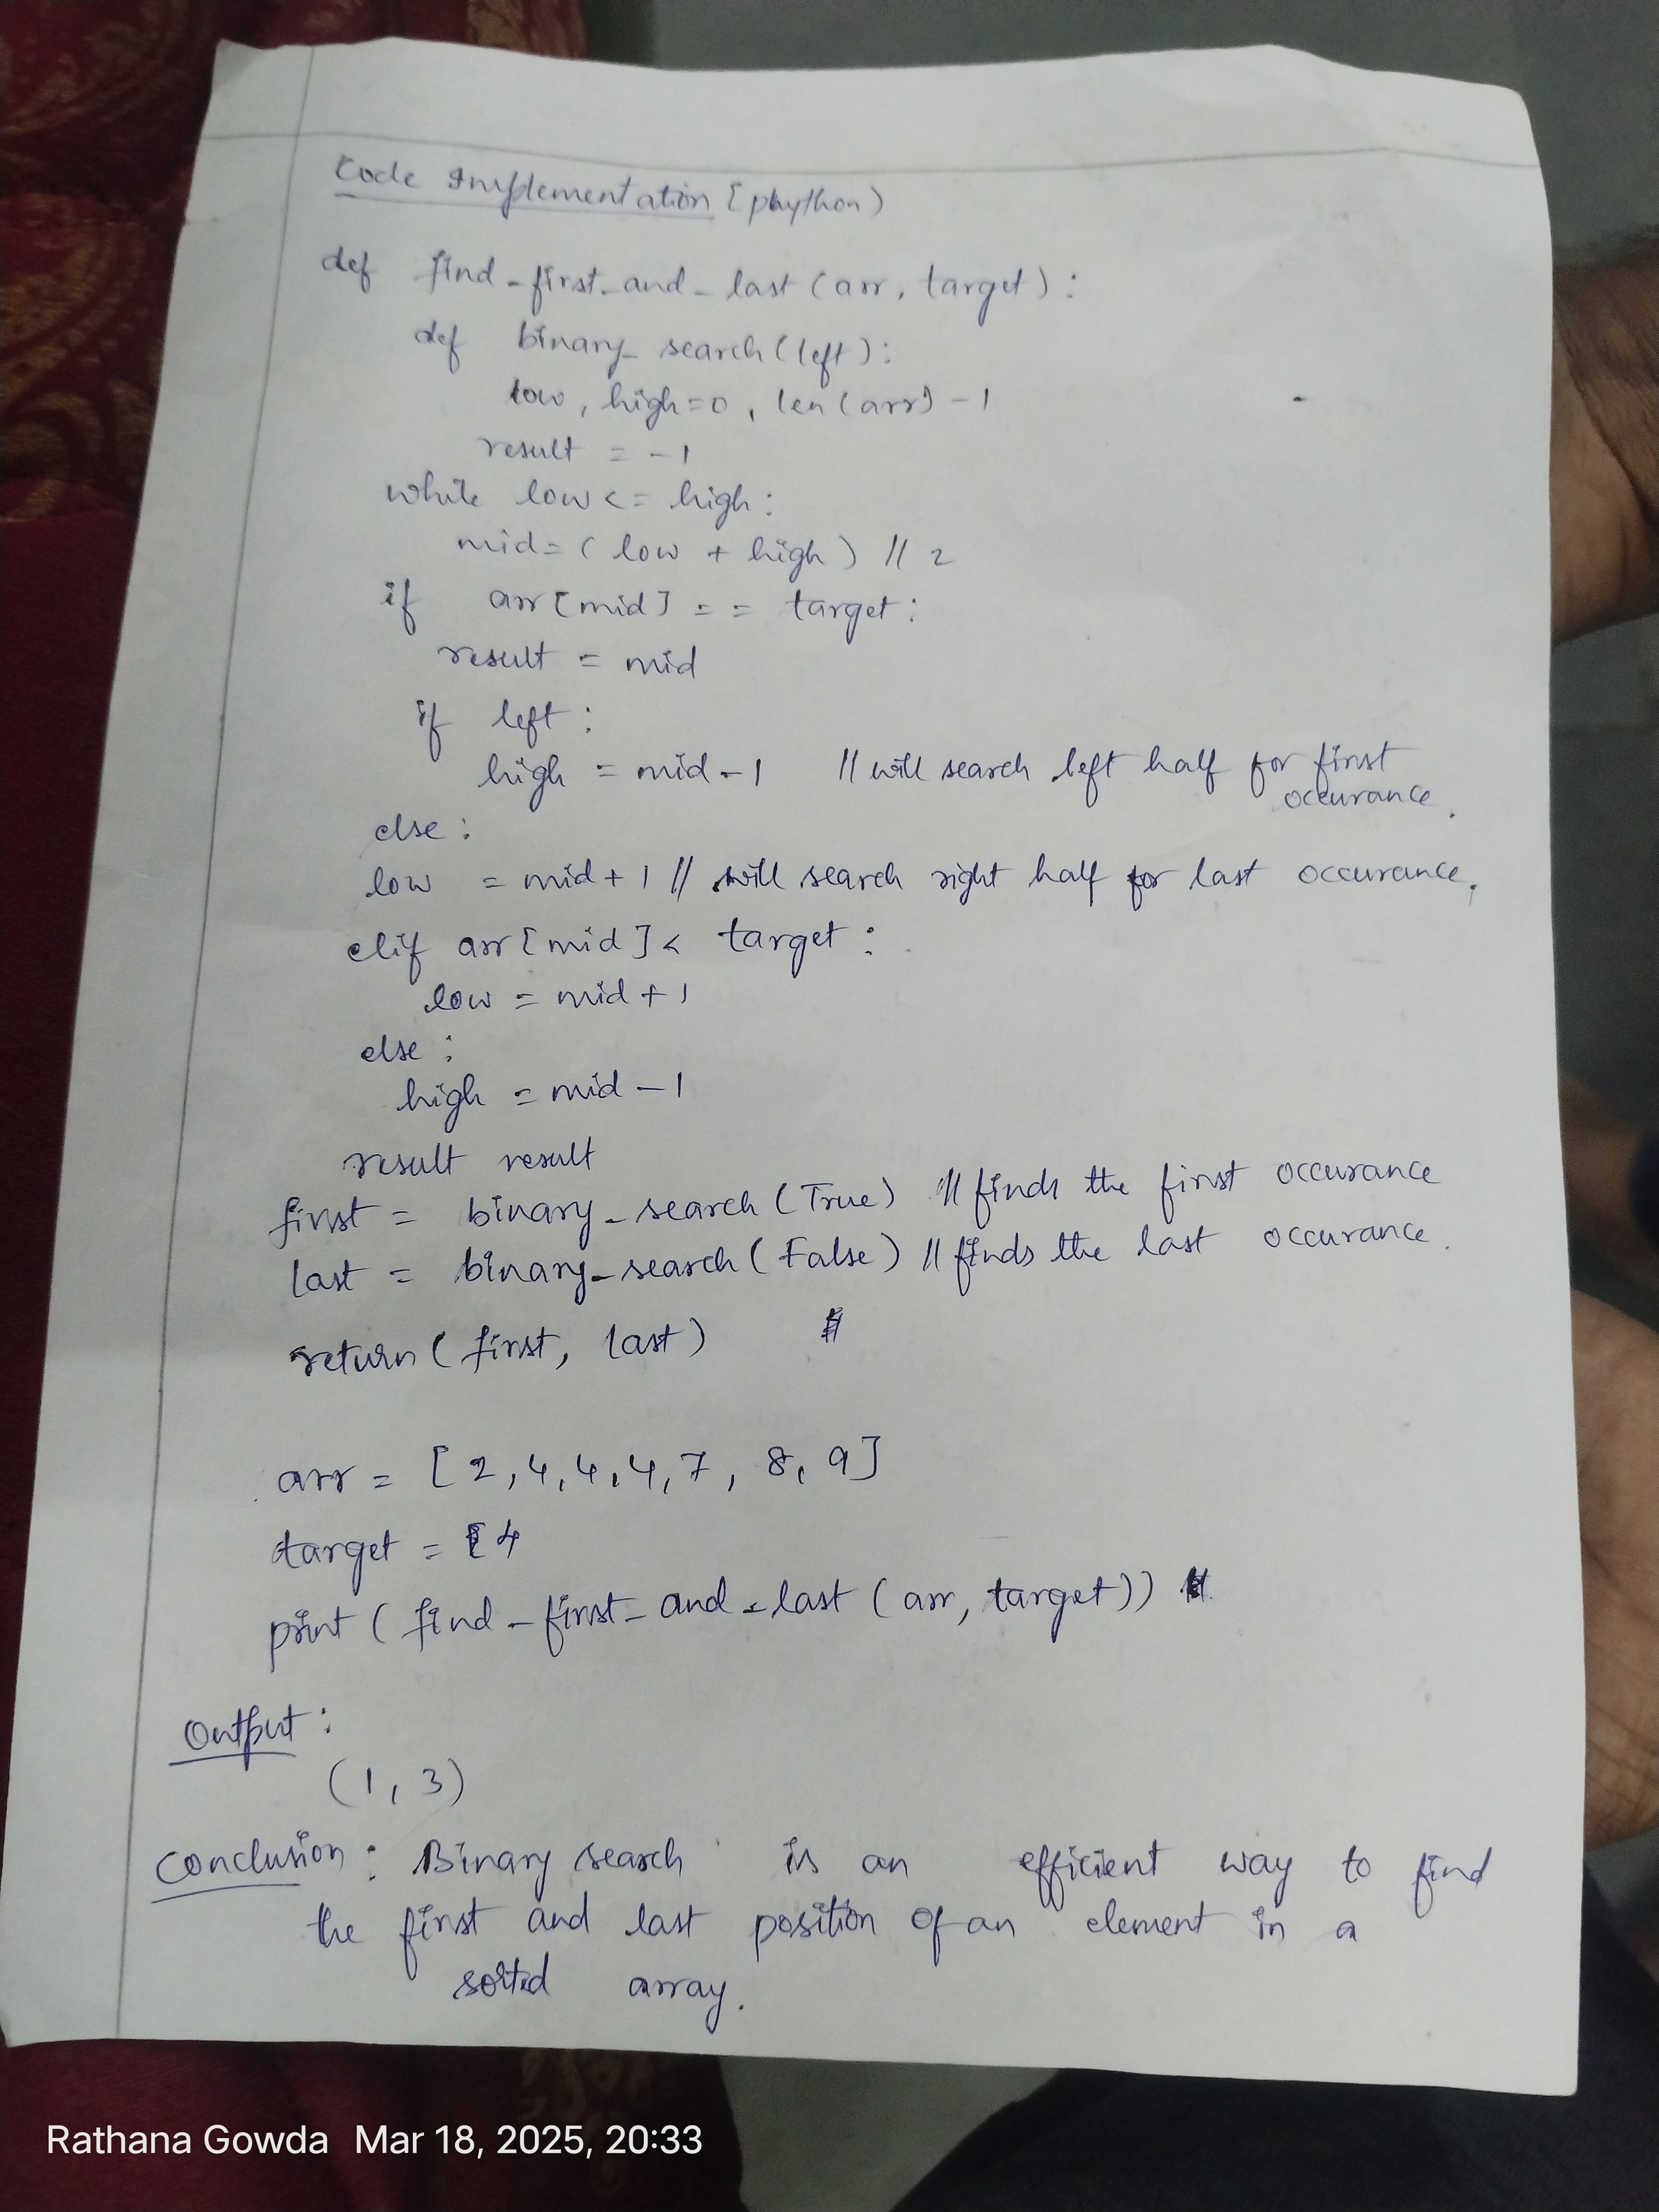 Code Implementation [phython)
def find-first-and-last (arr, target):
def binary_search(left):
low, high=0, len(arr)-1
result = -1
while low <= high:
mid=(low + high) // 2
if arr[mid] == target:
result = mid
if left:
high = mid-1 // will search left half for first
occurance.
else:
low = mid+1 // will search right half for last occurance.
elif arr[mid] < target:
low = mid+1
else:
high = mid-1
result result
first = binary-search(True) // finds the first occurance
last = binary-search(False) // finds the last occurance.
return(first, last)
arr = [2,4,4,4,7, 8, 9]
target = [4
print(find-first-and-last (arr, target))
Output:
(1, 3)
Conclusion: Binary search is an efficient way to find
the first and last position of an element in a
sorted array.
Rathana Gowda Mar 18, 2025, 20:33